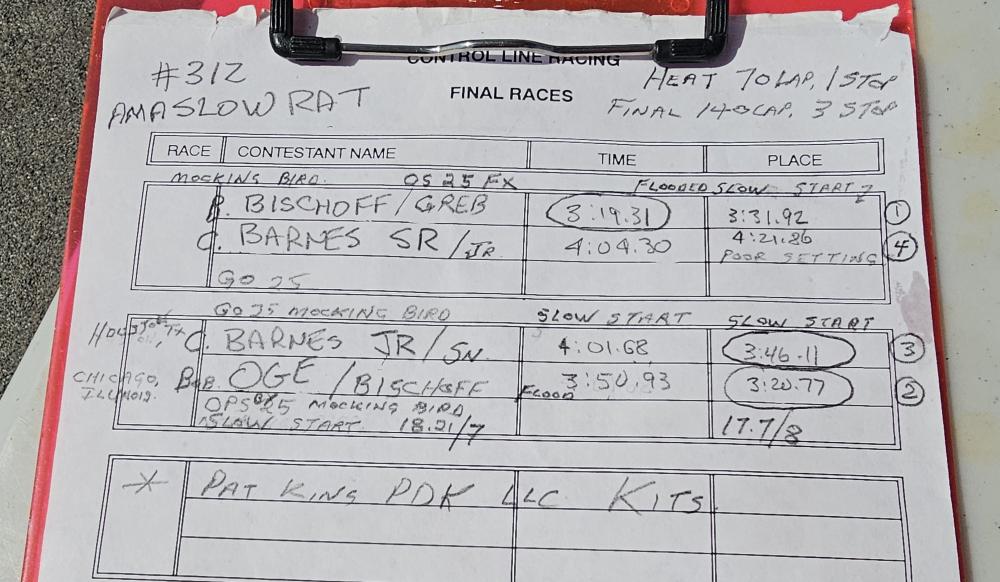 CONTROL LINE RACING
#312
HEAT 70 LAP, 1 STOP
AMA SLOW RAT
FINAL RACES
FINAL 140 LAP, 3 STOP
RACE CONTESTANT NAME TIME PLACE
MOCKING BIRD. OS 25 FX FLOODED SLOW START
BISCHOFF/GREB 3:19.31 3:31.92 1
C. BARNES SR/JR 4:04.30 4:21.86 4
POOR SETTING
GO 25
GO 25 MOCKING BIRD SLOW START SLOW START
TX C. BARNES JR/SN. 4:01.68 3:46.11 3
CHICAGO, BOB. OGE/BISCHOFF 3:50.93 3:20.77 2
ILLINOIS. FLOOD
OPS 25 MOCKING BIRD
SLOW START. 18.21/7 17.7/8
* PAT KING PDK LLC KITS